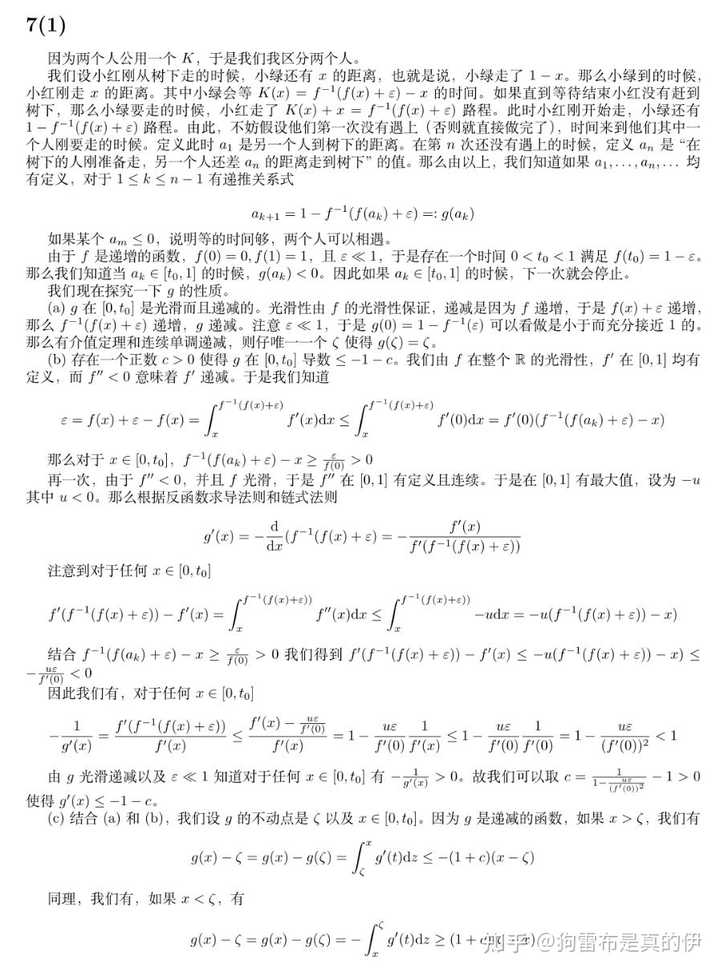 7(1)
因为两个人公用一个 K，于是我们我区分两个人。
我们设小红刚从树下走的时候，小绿还有 x 的距离，也就是说，小绿走了 1 − x。那么小绿到的时候，
小红刚走 x 的距离。其中小绿会等 K(x) = f⁻¹(f(x) + ε) − x 的时间。如果直到等待结束小红没有赶到
树下，那么小绿要走的时候，小红走了 K(x) + x = f⁻¹(f(x) + ε) 路程。此时小红刚开始走，小绿还有
1 − f⁻¹(f(x) + ε) 路程。由此，不妨假设他们第一次没有遇上（否则就直接做完了），时间来到他们其中一
个人刚要走的时候。定义此时 a₁ 是另一个人到树下的距离。在第 n 次还没有遇上的时候，定义 aₙ 是 “在
树下的人刚准备走，另一个人还差 aₙ 的距离走到树下” 的值。那么由以上，我们知道如果 a₁, . . . , aₙ, . . . 均
有定义，对于 1 ≤ k ≤ n − 1 有递推关系式
aₖ₊₁ = 1 − f⁻¹(f(aₖ) + ε) =: g(aₖ)
如果某个 aₘ ≤ 0，说明等的时间够，两个人可以相遇。
由于 f 是递增的函数，f(0) = 0, f(1) = 1，且 ε ≪ 1，于是存在一个时间 0 < t₀ < 1 满足 f(t₀) = 1 − ε。
那么我们知道当 aₖ ∈ [t₀, 1] 的时候，g(aₖ) < 0。因此如果 aₖ ∈ [t₀, 1] 的时候，下一次就会停止。
我们现在探究一下 g 的性质。
(a) g 在 [0, t₀] 是光滑而且递减的。光滑性由 f 的光滑性保证，递减是因为 f 递增，于是 f(x) + ε 递增，
那么 f⁻¹(f(x) + ε) 递增，g 递减。注意 ε ≪ 1，于是 g(0) = 1 − f⁻¹(ε) 可以看做是小于而充分接近 1 的。
那么有介值定理和连续单调递减，则仔唯一一个 ζ 使得 g(ζ) = ζ。
(b) 存在一个正数 c > 0 使得 g 在 [0, t₀] 导数 ≤ −1 − c。我们由 f 在整个 ℝ 的光滑性，f′ 在 [0, 1] 均有
定义，而 f″ < 0 意味着 f′ 递减。于是我们知道
ε = f(x) + ε − f(x) = ∫ₓ^{f⁻¹(f(x)+ε)} f′(x)dx ≤ ∫ₓ^{f⁻¹(f(x)+ε)} f′(0)dx = f′(0)(f⁻¹(f(aₖ) + ε) − x)
那么对于 x ∈ [0, t₀]，f⁻¹(f(aₖ) + ε) − x ≥ ε/f(0) > 0
再一次，由于 f″ < 0，并且 f 光滑，于是 f″ 在 [0, 1] 有定义且连续。于是在 [0, 1] 有最大值，设为 −u
其中 u < 0。那么根据反函数求导法则和链式法则
g′(x) = − d/dx (f⁻¹(f(x) + ε) = − f′(x)/f′(f⁻¹(f(x) + ε))
注意到对于任何 x ∈ [0, t₀]
f′(f⁻¹(f(x) + ε)) − f′(x) = ∫ₓ^{f⁻¹(f(x)+ε))} f″(x)dx ≤ ∫ₓ^{f⁻¹(f(x)+ε))} −udx = −u(f⁻¹(f(x) + ε)) − x)
结合 f⁻¹(f(aₖ) + ε) − x ≥ ε/f(0) > 0 我们得到 f′(f⁻¹(f(x) + ε)) − f′(x) ≤ −u(f⁻¹(f(x) + ε)) − x) ≤
− uε/f′(0) < 0
因此我们有，对于任何 x ∈ [0, t₀]
− 1/g′(x) = f′(f⁻¹(f(x) + ε))/f′(x) ≤ (f′(x) − uε/f′(0))/f′(x) = 1 − uε/f′(0) 1/f′(x) ≤ 1 − uε/f′(0) 1/f′(0) = 1 − uε/(f′(0))² < 1
由 g 光滑递减以及 ε ≪ 1 知道对于任何 x ∈ [0, t₀] 有 − 1/g′(x) > 0。故我们可以取 c = 1/(1 − uε/(f′(0))²) − 1 > 0
使得 g′(x) ≤ −1 − c。
(c) 结合 (a) 和 (b)，我们设 g 的不动点是 ζ 以及 x ∈ [0, t₀]。因为 g 是递减的函数，如果 x > ζ，我们有
g(x) − ζ = g(x) − g(ζ) = ∫_ζ^x g′(t)dz ≤ −(1 + c)(x − ζ)
同理，我们有，如果 x < ζ，有
g(x) − ζ = g(x) − g(ζ) = − ∫ₓ^ζ g′(t)dz ≥ (1 + c)(ζ − x)
知乎 @狗雷布是真的伊